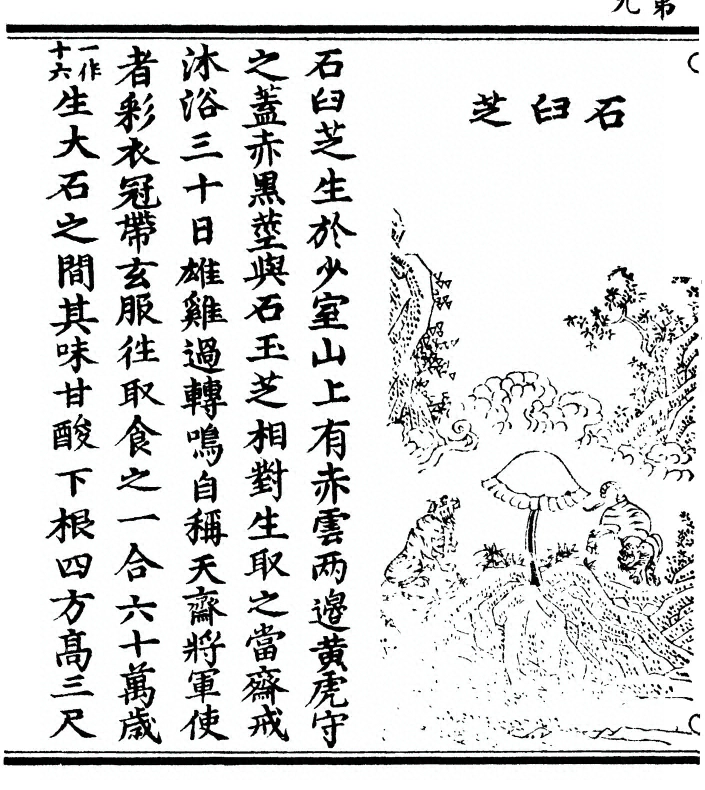 石臼芝
石臼芝生於少室山上有赤雲两邊黄虎守
之蓋赤黒莖與石玉芝相對生取之當齋戒
沐浴三十日雄雞過轉鳴自稱天齋將軍使
者彩衣冠帶玄服徃取食之一合六十萬歲
一作十六生大石之間其味甘酸下根四方高三尺